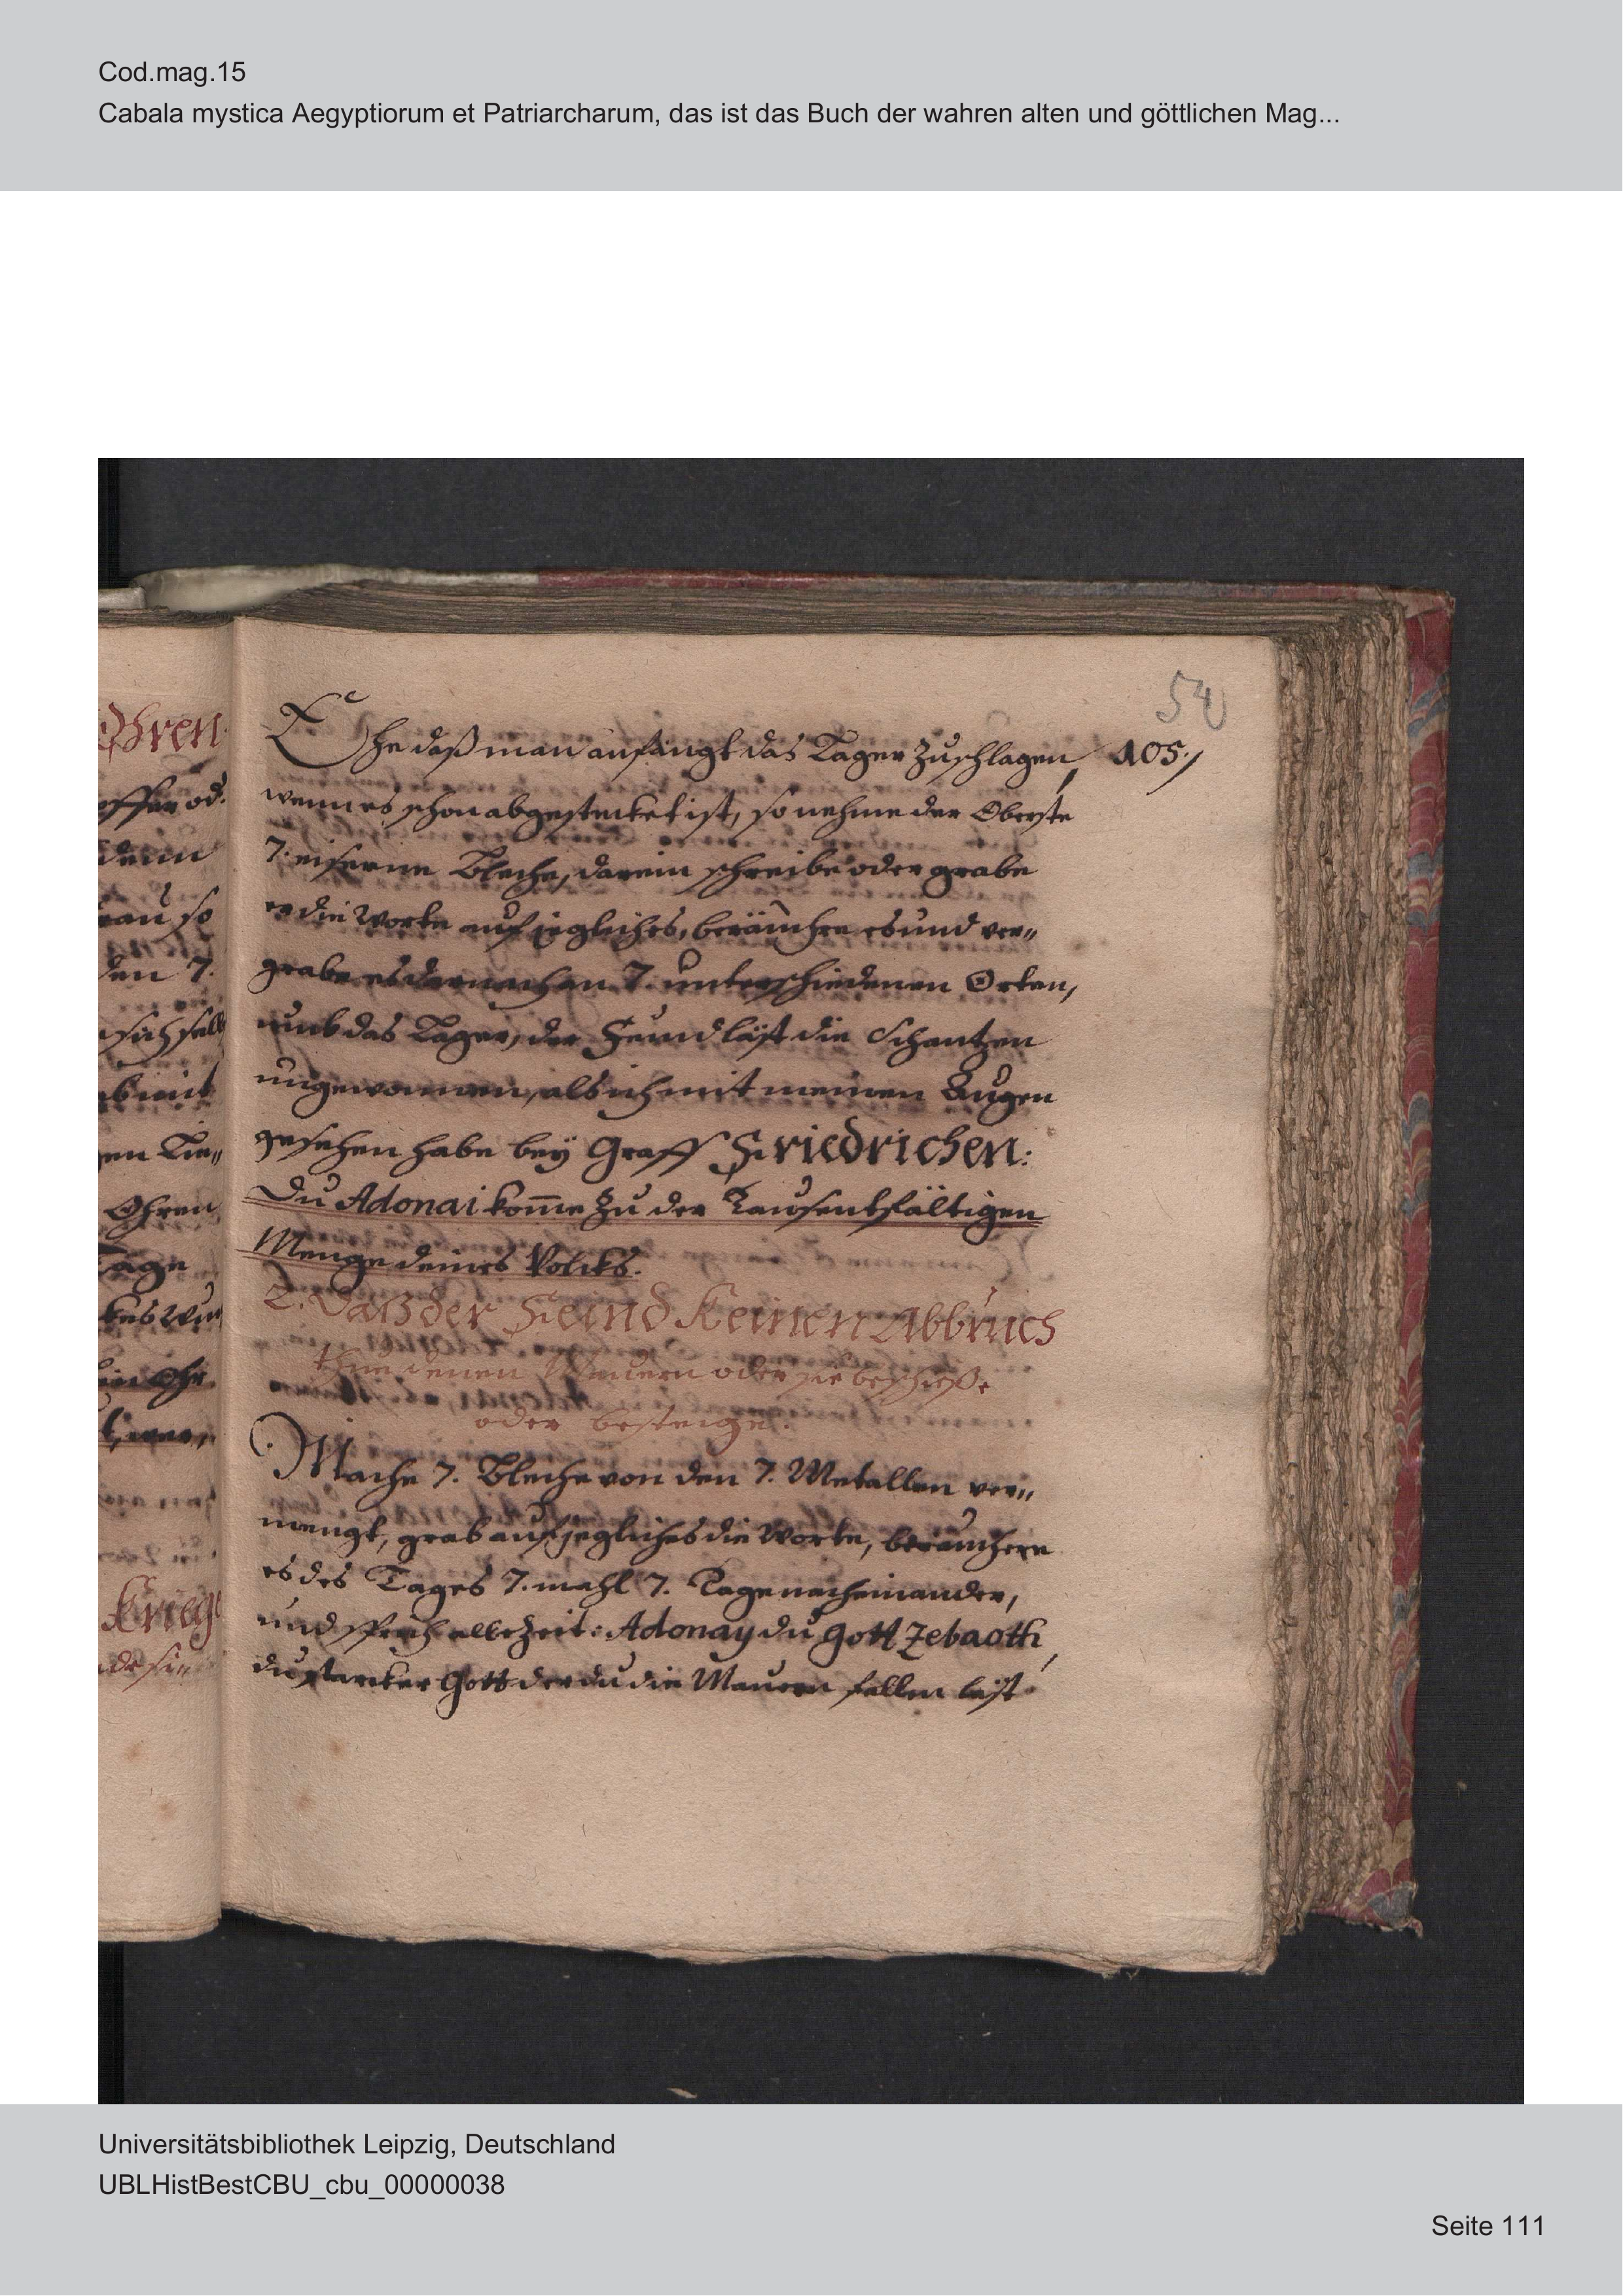 Cod.mag.15
Cabala mystica Aegyptiorum et Patriarcharum, das ist das Buch der wahren alten und göttlichen Mag...
54
Ehe daß man anfängt das Lager zuschlagen, 105./
wenn es schon abgestecket ist, so nehme der Oberste
7. eiserne Bleche, darein schreibe oder grabe
er die Worte auf jegliches, beräuchre es und ver„
grabe es darnach an 7. unterschiedenen Orten,
umb das Lager, der Feind läst die Schantzen
ungewonnen, als ich mit meinen Augen
gesehen habe bey Graff Friedrichen:
Du Adonai kom̅e zu der Tausentfältigen
Menge deines Volcks.
2. Daß der Feind Keinen Abbruch
thue denen Mauern oder sie beschieße
oder besteige.
Mache 7. Bleche von den 7. Metallen ver„
mengt, grab auf jegliches die Worte, beräuchere
es des Tages 7. mahl 7. Tage nacheinander,
und sprich allezeit: Adonay du Gott Zebaoth,
du starcker Gott der du die Mauern fallen lest
Ohren
oder
den 7.
Ohren
Tage
Krieg
Universitätsbibliothek Leipzig, Deutschland
UBLHistBestCBU_cbu_00000038
Seite 111